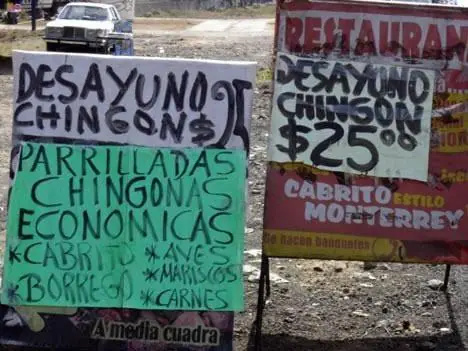 DESAYUNO
CHINGON $25
PARRILLADAS
CHINGONAS
ECONOMICAS
*CABRITO *AVES
*BORREGO *MARISCOS
*CARNES
A media cuadra
RESTAURAN
DESAYUNO
CHINGON
$25.00
CABRITO ESTILO
MONTERREY
Se hacen banquetes